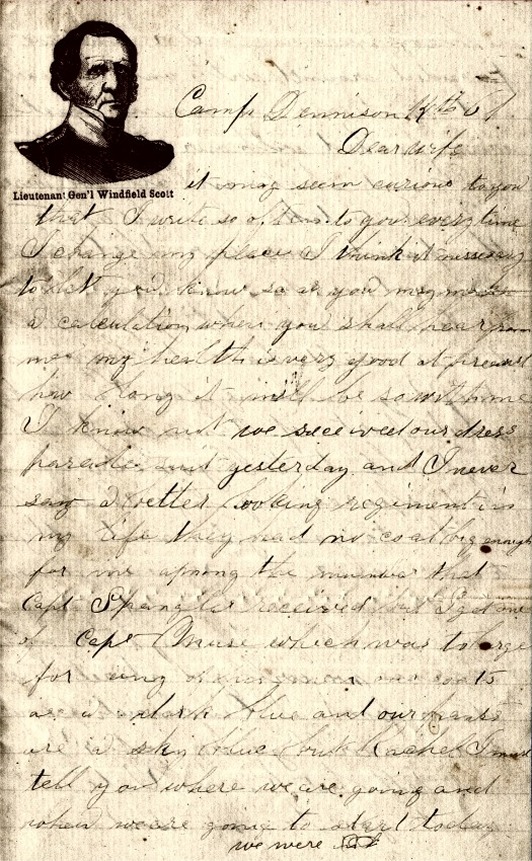 Camp Dennison 14th 61
Dear wife
Lieutenant Gen'l Windfield Scott
it may seem curious to you
that I write so often to you every time
I change my place I think it nessesary
to let you know so as you may make
a calculation when you shall hear from
me my health is very good at present
how long it will be so with me
I know not we received our dress
parade suit yesterday and I never
saw a better looking regiment in
my life they had no coat big enough
for me among the number that
Capt Spangler received but I got one
of Capt Muse which was to large
for any of his men our coats
are a dark blue and our pants
are a sky blue but Rachel I must
tell you where we are going and
when we are going to start today
we were